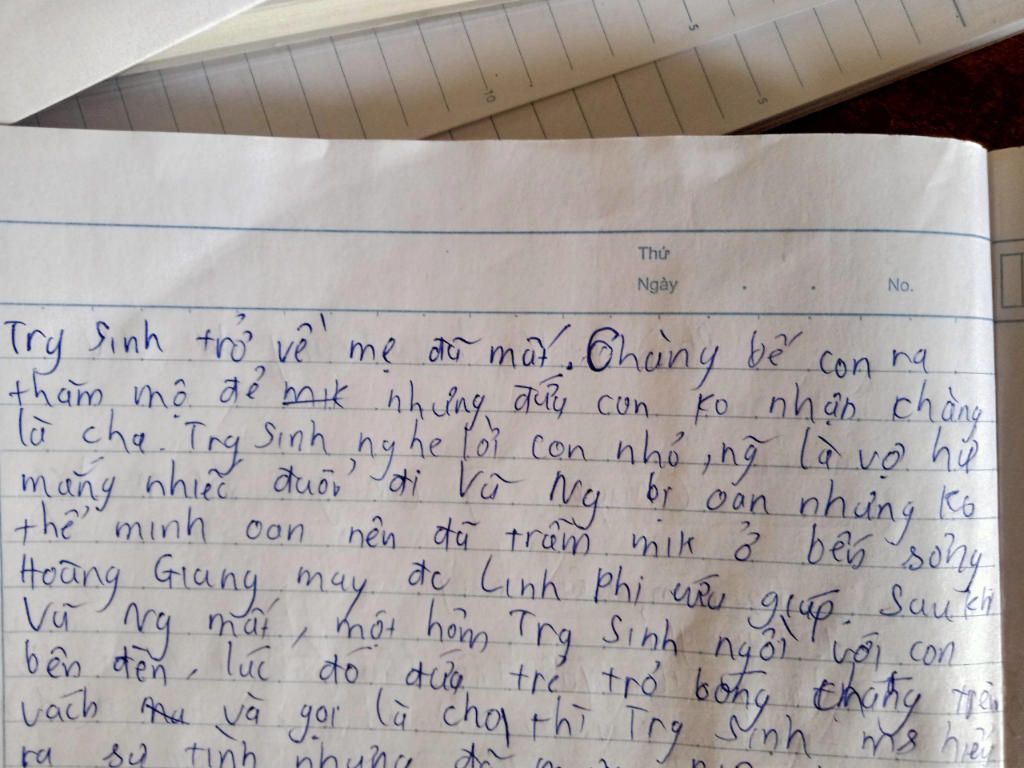 5
10
5
Thứ
Ngày . . No.
Trg Sinh trở về mẹ đã mất. Chàng bế con ra
thăm mộ để mik nhưng đứa con ko nhận chàng
là cha. Trg Sinh nghe lời con nhỏ, ng~ là vợ hư
mắng nhiếc đuổi đi Vũ Ng bị oan nhưng ko
thể minh oan nên đã trẫm mik ở bến sông
Hoàng Giang may đc Linh Phi cứu giúp. Sau khi
Vũ Ng mất, một hôm Trg Sinh ngồi với con
bên đèn, lúc đó đứa trẻ trỏ bóng chàng trên
vách và gọi là cha thì Trg Sinh ms hiểu
ra sự tình nhưng đã